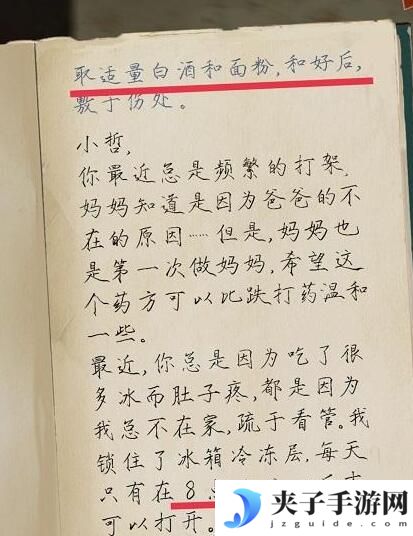 取适量白酒和面粉,和好后,
敷于伤处。
小哲,
你最近总是频繁的打架,
妈妈知道是因为爸爸的不
在的原因……但是,妈妈也
是第一次做妈妈,希望这
个药方可以比跌打药温和
一些。
最近,你总是因为吃了很
多冰而肚子疼,都是因为
我总不在家,疏于看管。我
锁住了冰箱冷冻层,每天
只有在8
可以打开。
夹子手游网
jzguide.com